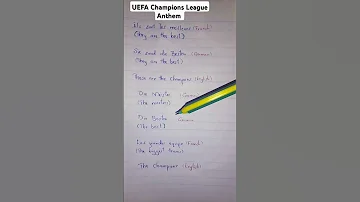 UEFA Champions League
Anthem
Ils sont les meilleurs (French)
(They are the best)
Sie sind die Besten (German)
(They are the best)
These are the champions (English)
Die Meister (German)
(The masters)
Die Besten (German)
(The best)
Les grandes équipes (French)
(The biggest teams)
The champions (English)